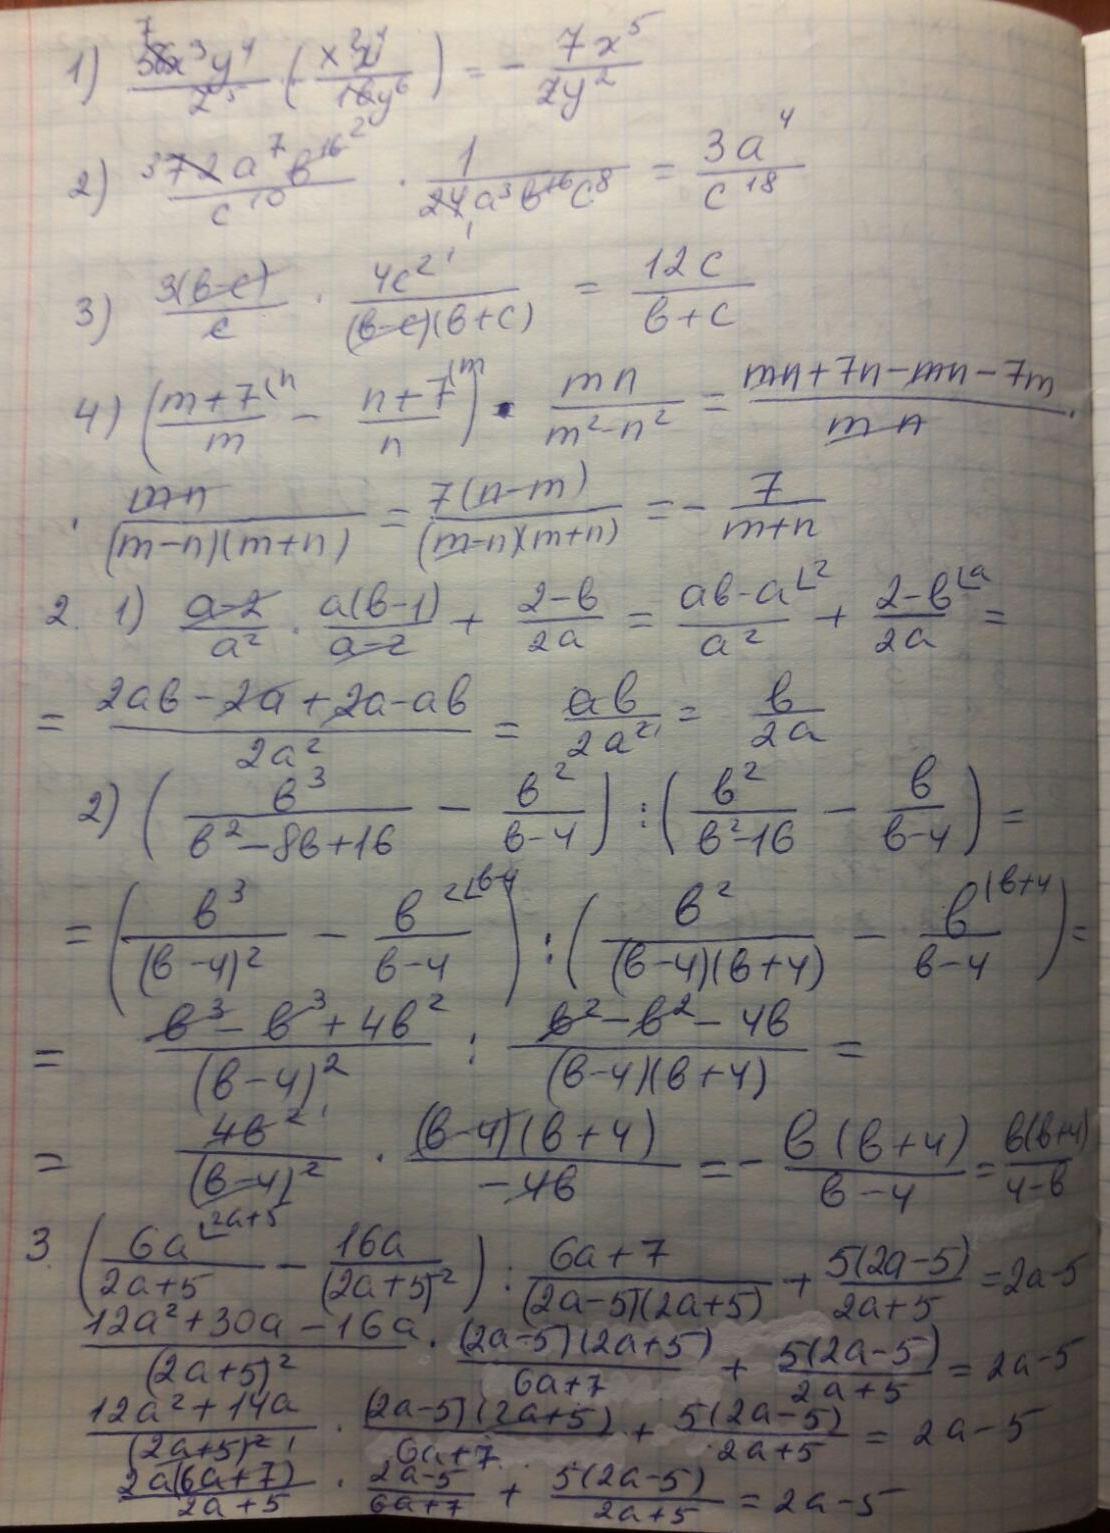 1) 56x³y⁴/z⁵ · (- x²z⁴/16y⁶) = - 7x⁵/2y²
2) 72a⁷b¹⁶/c¹⁰ · 1/24a³b¹⁶c⁸ = 3a⁴/c¹⁸
3) 3(b-c)/c · 4c²/(b-c)(b+c) = 12c/b+c
4) (m+7⌊n/m - n+7⌊m/n) · mn/m²-n² = mn+7n-mn-7m/mn ·
· mn/(m-n)(m+n) = 7(n-m)/(m-n)(m+n) = - 7/m+n
2. 1) a-2/a² · a(b-1)/a-2 + 2-b/2a = ab-a⌊2/a² + 2-b⌊a/2a =
= 2ab-2a+2a-ab/2a² = ab/2a² = b/2a
2) (b³/b²-8b+16 - b²/b-4) : (b²/b²-16 - b/b-4) =
= (b³/(b-4)² - b²⌊b-4/b-4) : (b²/(b-4)(b+4) - b⌊b+4/b-4) =
= b³-b³+4b²/(b-4)² : b²-b²-4b/(b-4)(b+4) =
= 4b²/(b-4)² · (b-4)(b+4)/-4b = - b(b+4)/b-4 = b(b+4)/4-b
3. (6a⌊2a+5/2a+5 - 16a/(2a+5)²) : 6a+7/(2a-5)(2a+5) + 5(2a-5)/2a+5 = 2a-5
12a²+30a-16a/(2a+5)² · (2a-5)(2a+5)/6a+7 + 5(2a-5)/2a+5 = 2a-5
12a²+14a/(2a+5)² · (2a-5)(2a+5)/6a+7 + 5(2a-5)/2a+5 = 2a-5
2a(6a+7)/2a+5 · 2a-5/6a+7 + 5(2a-5)/2a+5 = 2a-5